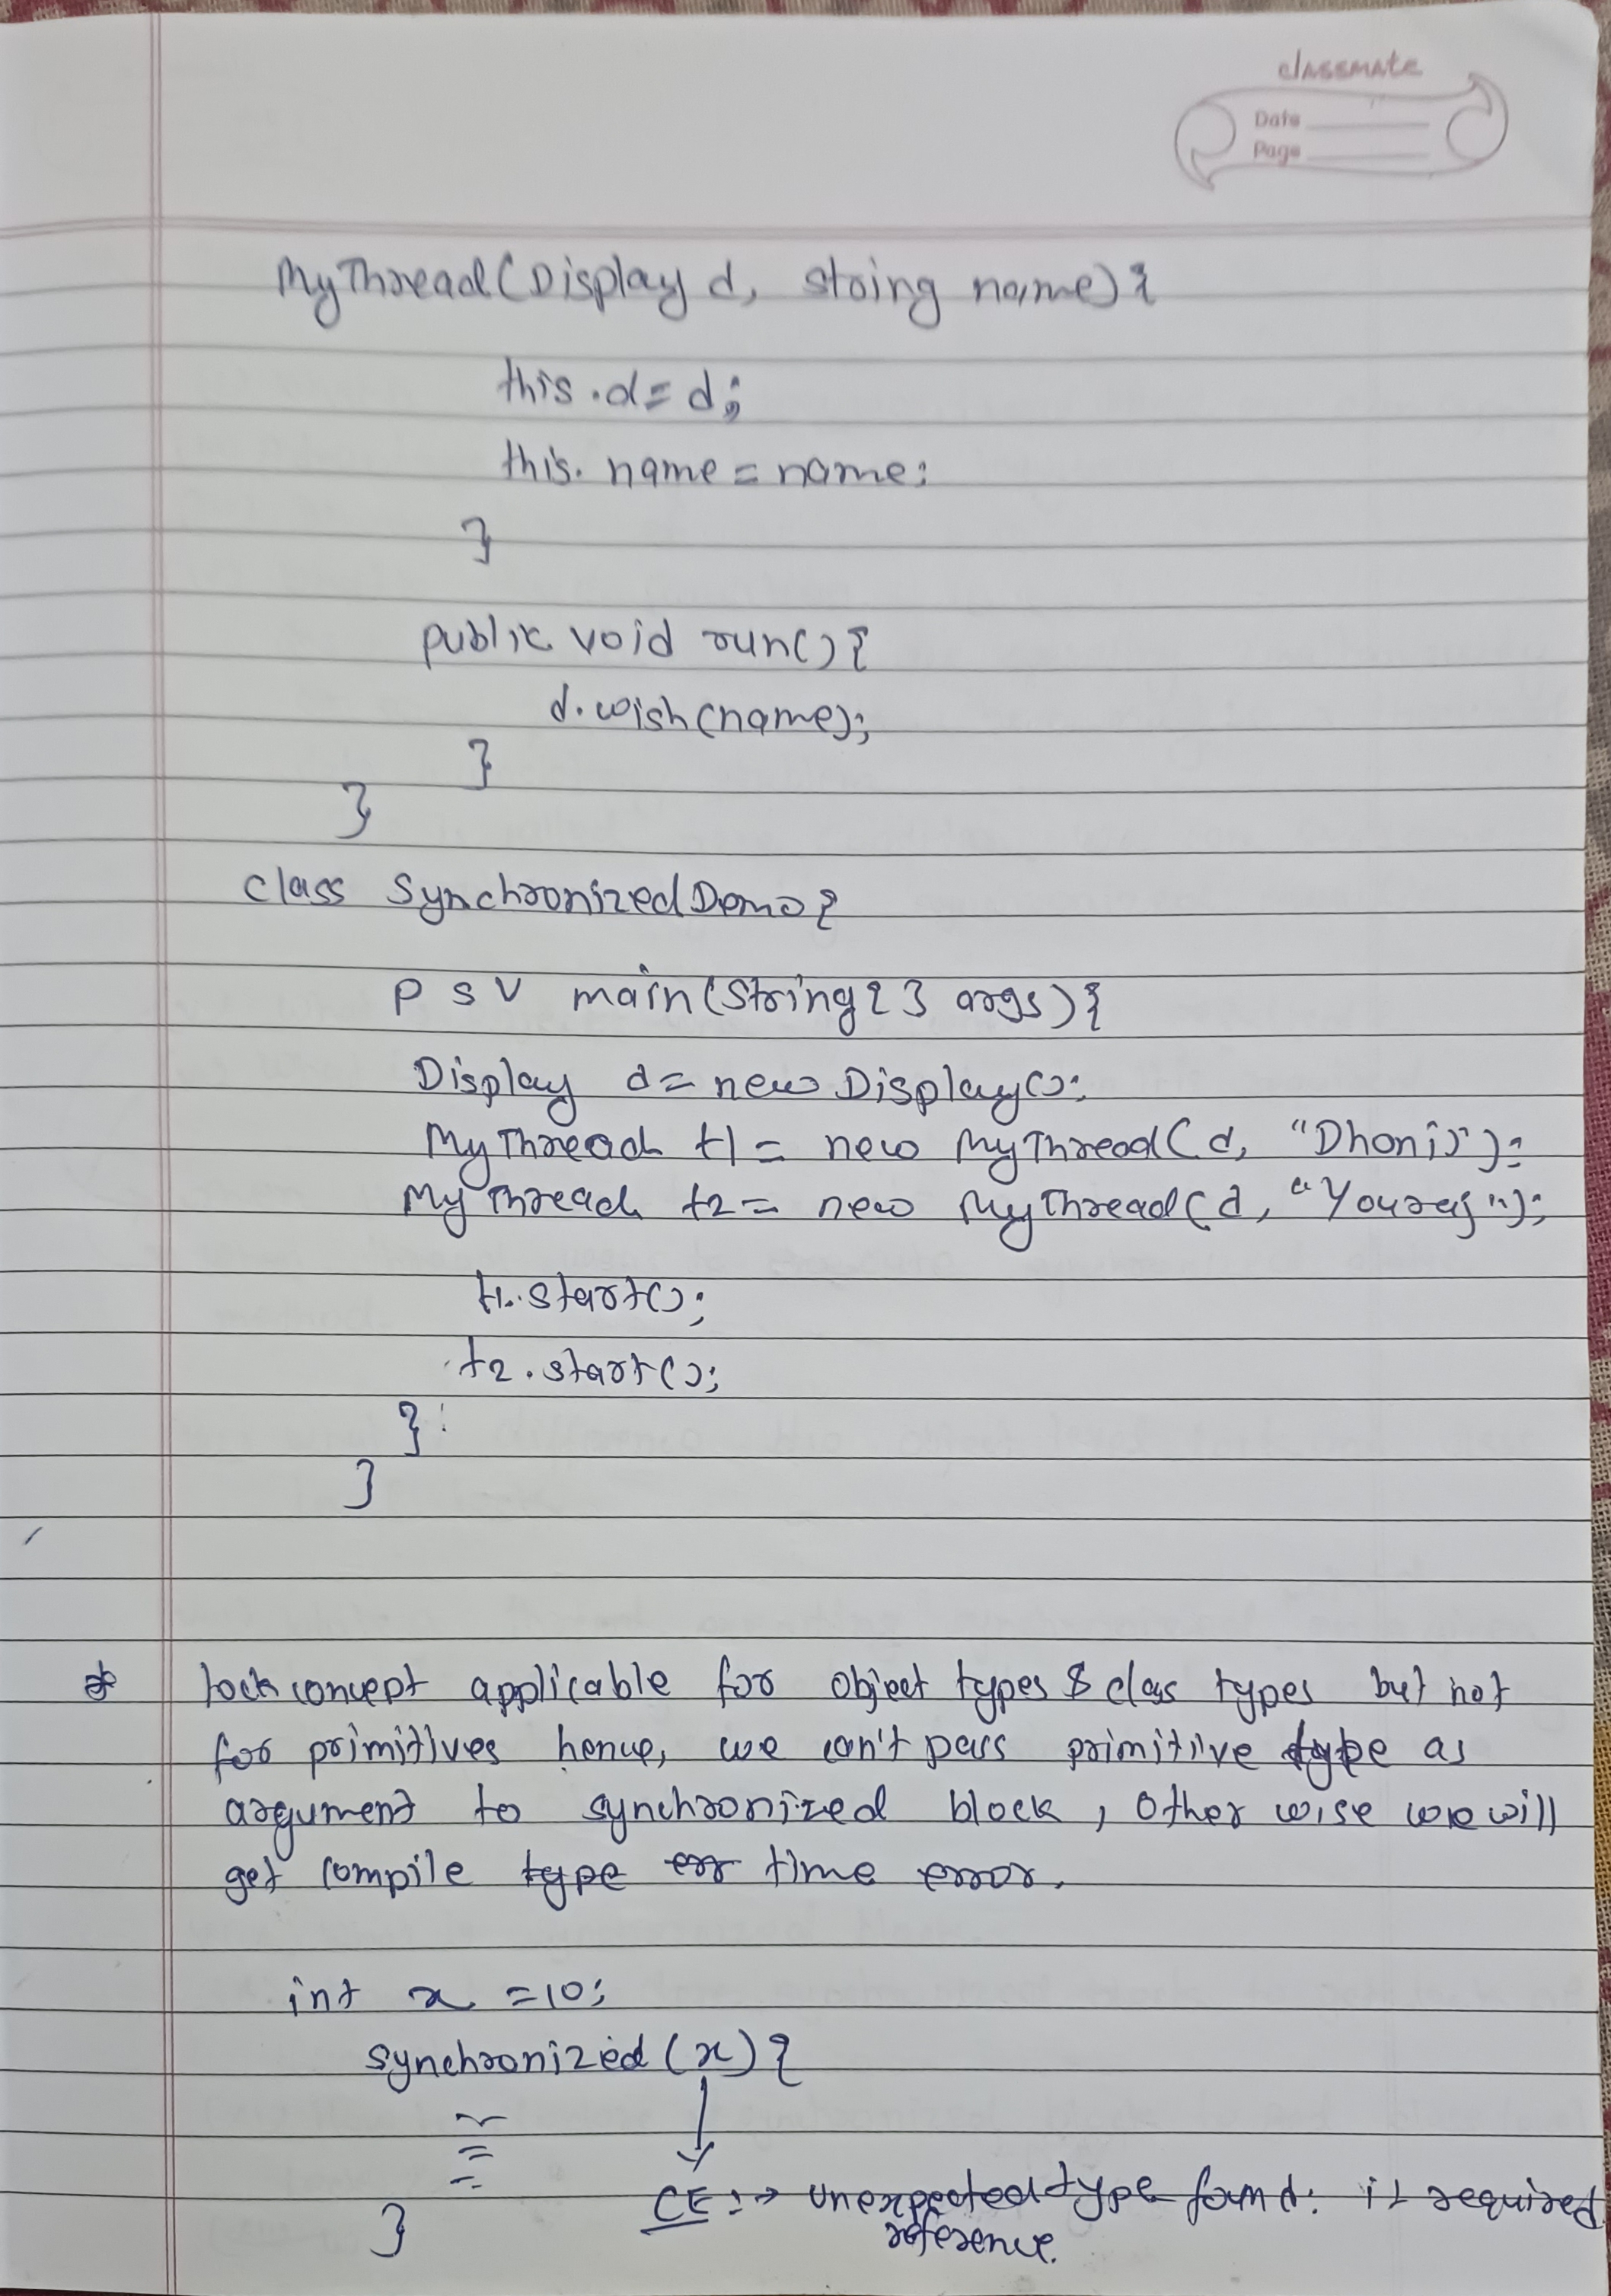 classmate
Date
Page
MyThread(Display d, string name){
this.d = d;
this.name = name;
}
public void run(){
d.wish(name);
}
}
class SynchronizedDemo{
P S V main(String[] args){
Display d = new Display();
MyThread t1 = new MyThread(d, "Dhoni");
MyThread t2 = new MyThread(d, "Youraj");
t1.start();
t2.start();
}
}
* lock concept applicable for object types & class types but not
for primitives hence, we can't pass primitive type as
argument to synchronized block, Other wise we will
get compile type err time error.
int x = 10;
synchronized (x) {
CE :→ unexpected type found: it required
}
reference.